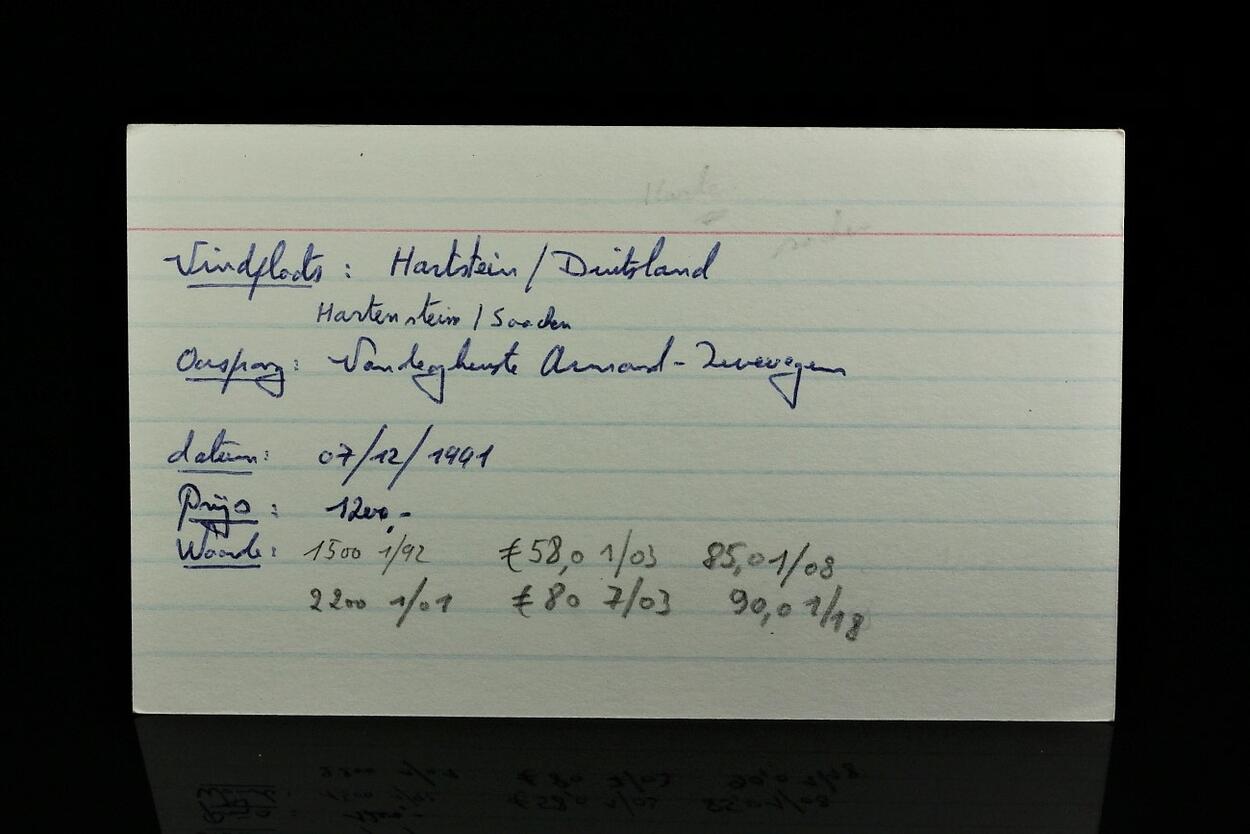 Vindplaats : Hartstein / Duitsland
Hartenstein / Saachen
Oorsprong : Vandegheuste Armand - Zwevegem
datum : 07/12/1991
Prijs : 1200,-
Waarde : 1500 1/92 €58,0 1/03 85,0 1/08
2200 1/01 €80 7/03 90,0 1/18